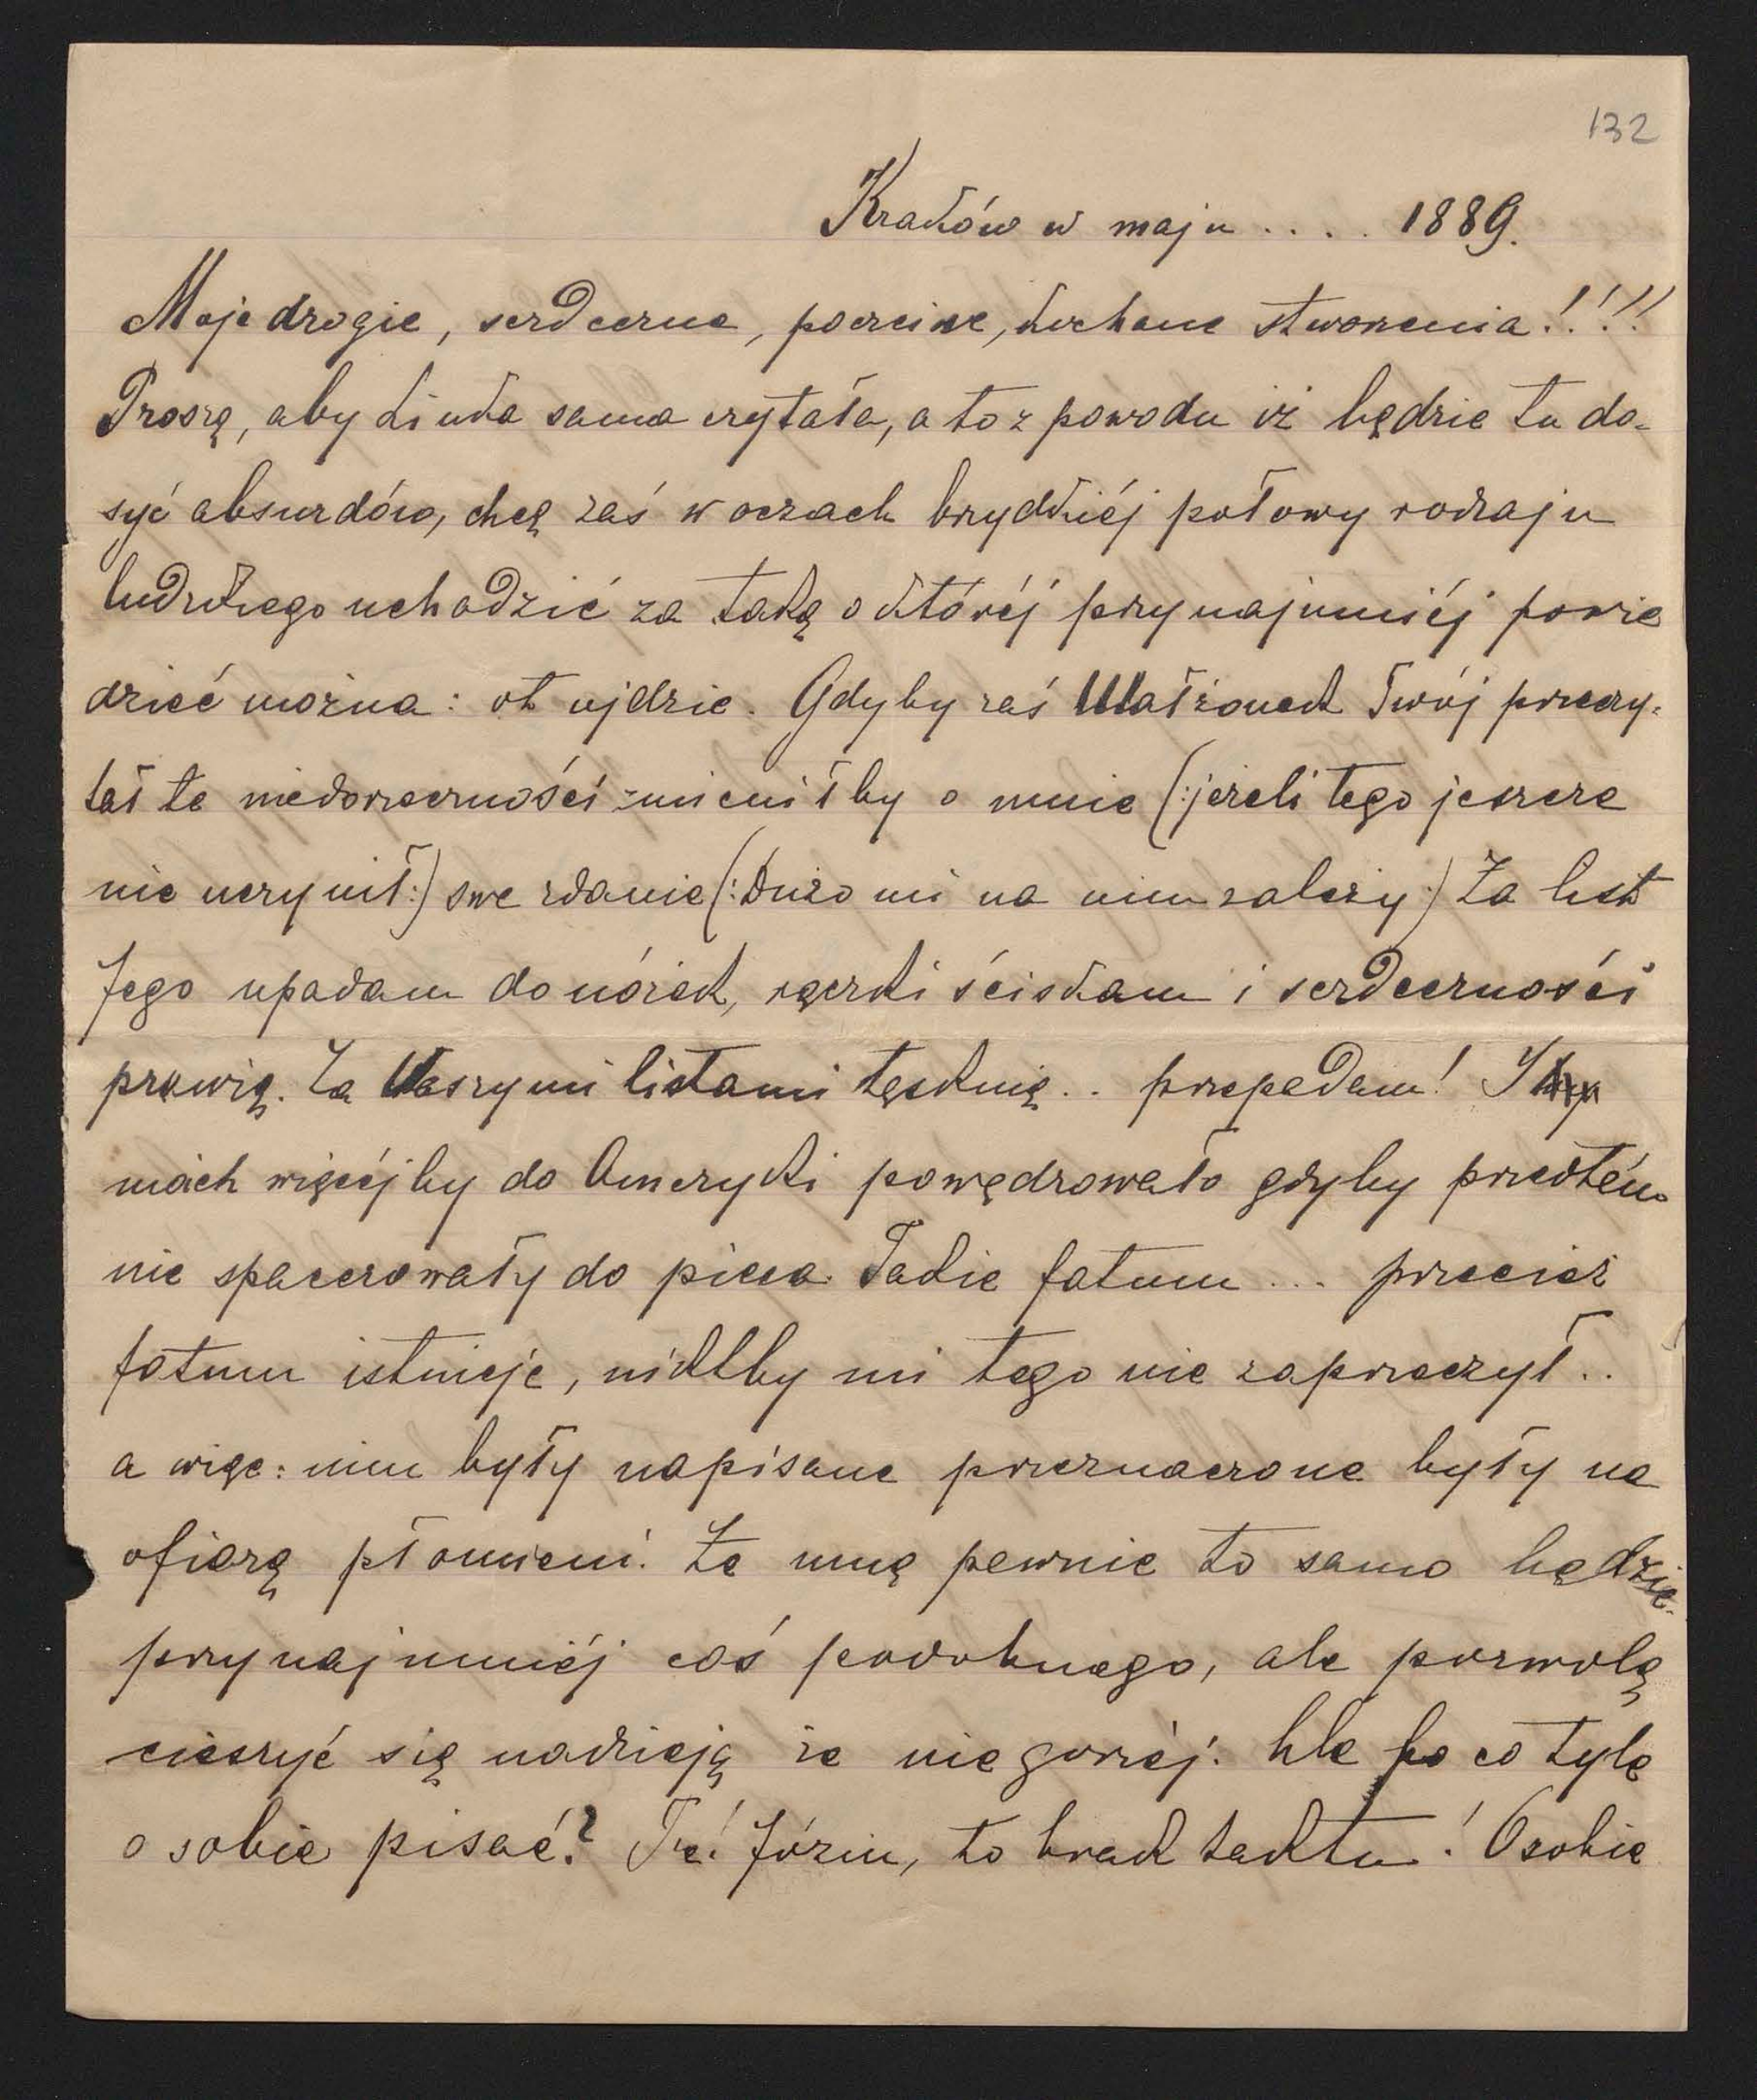 132
Kraków w maju .... 1889.
Moje drogie, serdeczne, poczciwe, kochane stworzenia!!!!
Proszę, aby Linka sama czytała, a to z powodu iż będzie tu do-
syć absurdów, chcę zaś w oczach brydkiéj połowy rodzaju
ludzkiego uchodzić za taką o któréj przynajmniéj powie
dzieć można: ot ujdzie. Gdyby zaś Małżonek Twój przeczy-
tał te niedorzeczności zmieniłby o mnie (:jeżeli tego jeszcze
nie uczynił:) swe zdanie (:Dużo mi na nim zależy:) Za list
Jego upadam do nóżek, rączki ściskam i serdeczności
prawię. Za Waszymi listami tęsknię .. przepadam!
moich więcéj by do Ameryki powędrowało gdyby przedtém
nie spacerowały do pieca. Takie fatum ... przecież
fatum istnieje, niktby mi tego nie zaprzeczył ..
a więc: nim były napisane przeznaczone były na
ofiarę płomieni. Ze mną pewnie to samo będzie.
przynajmniéj coś podobnego, ale pozwolę
cieszyć się nadzieją że nie gorzéj. Ale po co tyle
o sobie pisać? Józiu, to brak taktu! O sobie